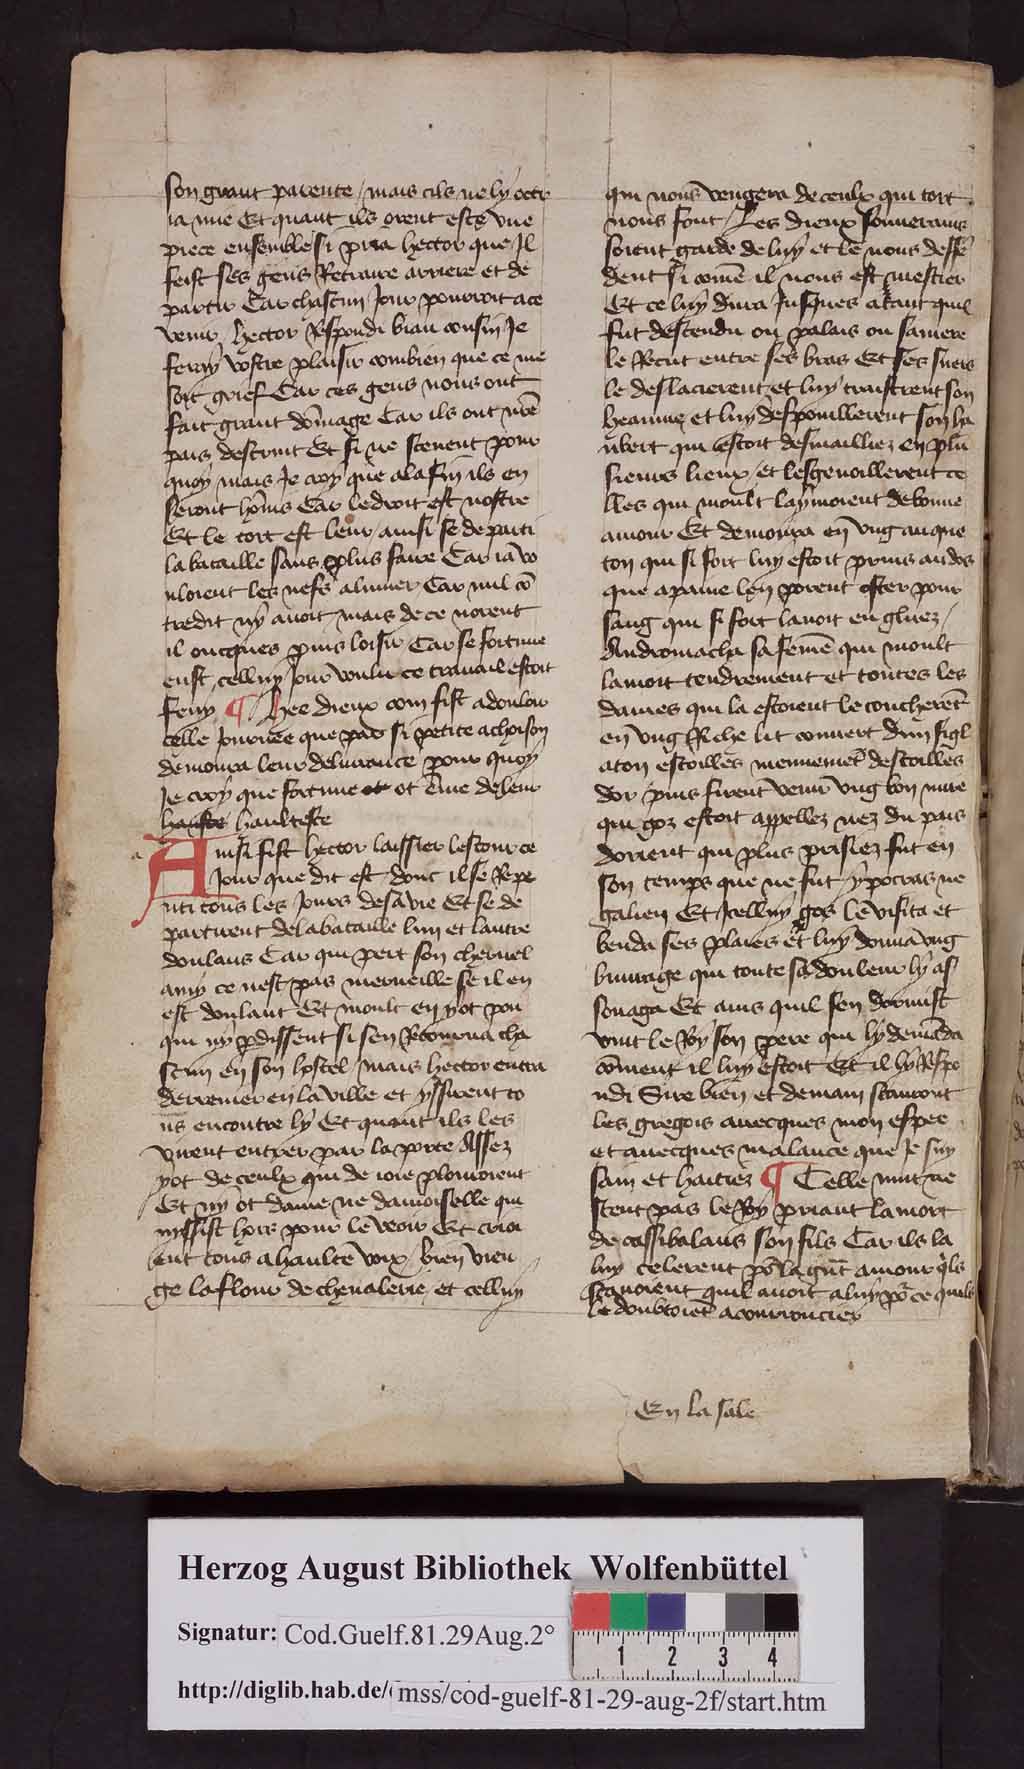 son grant parente / mais cils ne ly octr
ia mie Et quant ils orent este vne
piece ensemble si pria hector que Il
feist ses gens Retraire arriere et de
partir Car chascun Jour pourroit a ce
venir hector Respondi biau cousin Je
feray vostre plaisir combien que ce me
soit grief Car ces gens nous ont
fait grant dōmage Car ils ont nr̄e
pais destruit Et si ne scevent pour
quoy mais Je croy que a la fin ils en
seront hōnis Car le droit est nostre
Et le tort est leur ainsi se departi
la bataille sans plus faire Car ia vo
uloient les nefs alumer Car nul cō
tredit ny avoit mais de ce norent
il oncques puis loisir Car se fortune
eust celluy Jour voulu ce travail estoit
feny ¶ Hee dieux com fist a douloir
celle Journee que par si petite achoison
demoura leur delivrance pour quoy
Je croy que fortune ot ot ēvie de leur
haulte haultesse
a
Ainsi fist hector laissier lestour ce
Jour que dit est donc il se Repe
nti tous les Jours de sa vie Et se de
partirent de la bataille lun et lautre
doulans Car qui pert son charnel
amy ce nest pas merveille se il en
est doulant Et moult en yot pou
qui ny perdissent si sen Retourna cha
scun en son hostel / mais hector entra
derrenier en la ville et yssirent to
us encontre ly Et quant ils les
virent entrer par la porte Assez
yot de ceulx qui de ioie plouroient
Et ny ot dame ne damoiselle qui
nyssist hors pour le veoir Et crioi
ent tous a haulte voix / bien vien
ge la flour de chevalerie et celluy
qui nous vengera de ceulx qui tort
nous font / Les dieux souverains
soient garde de luy et le nous deffē
dent si comē il nous est mestier
Et ce luy dura Jusques a tant quil
fut descendu ou palais ou sa mere
le Recut entre ses bras Et ses suers
le deslacierent et luy traistrent son
heaume et luy despouillerent son ha
ubert qui estoit desmailliez en plu
sieurs lieux et lesgenoillerent ce
lles qui moult laymoient de bonne
amour Et demoura en vng auque
ton qui si fort luy estoit prins au dos
que a paine len porent oster pour
sang qui si fort lavoit engluez /
Andromacha sa femē qui moult
lamoit tendrement et toutes les
dames qui la estoient le coucherēt
en vng Riche lit couvert dun sigl
aton estoilles menuemēt destoilles
dor puis firent venir vng bon mire
qui goz estoit appellez nez du pais
dorient qui plus prisiez fut en
son temps que ne fut ypocras ne
galien Et Jcelluy gos le visita et
benda ses plaies et luy donna vng
buvrage qui toute sa douleur ly as
souaga Et ains quil sen dormist
vint le Roy son pere qui ly demāda
cōment il luy estoit Et il ly Respo
ndi Sire bien et demain scauront
les gregois avecques mon espee
et avecques ma lance que Je suy
sain et haitiez ¶ Celle nuit ne
scent pas le Roy priant la mort
de cassibalans son fils Car ils la
luy celerent pō la grāt amour q̄ls
scavoient quil avoit a luy pō ce quils
le doubtoiēt a courroucier
En la sale
Herzog August Bibliothek Wolfenbüttel
Signatur: Cod.Guelf.81.29Aug.2°
1 2 3 4
http://diglib.hab.de/ mss/cod-guelf-81-29-aug-2f/start.htm